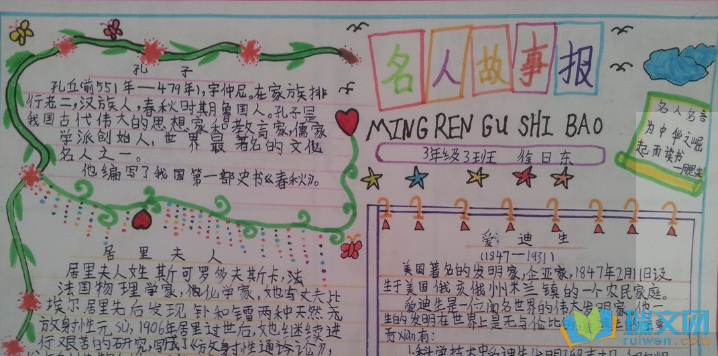 孔 子
孔丘(前551年—479年),字仲尼。在家族排
行老二,汉族人,春秋时期鲁国人。孔子是
我国古代伟大的思想家和教育家,儒家
学派创始人,世界最著名的文化
名人之一。
他编写了我国第一部史书《春秋》。
居里夫人
居里夫人姓斯可罗多夫斯卡,法
法国物理学家,他化学家,她与丈夫比
埃尔居里先后发现钋和镭两种天然
放射性元sù,1906年居里过世后,她继续进
行艰苦的研究,完成《放射性通论》,
名人故事报
MING REN GU SHI BAO
3年级3班 徐日东
名人名言
为中华之崛
起而读书
爱迪生
(1847—1931)
美国著名的发明家,企业家,1847年2月11日诞
生于美国俄亥俄州米兰镇的一个农民家庭。
爱迪生是一位闻名世界的伟大发明家,他一
生的发明在世界上是无与伦比
瑞文网
ruiwen.com